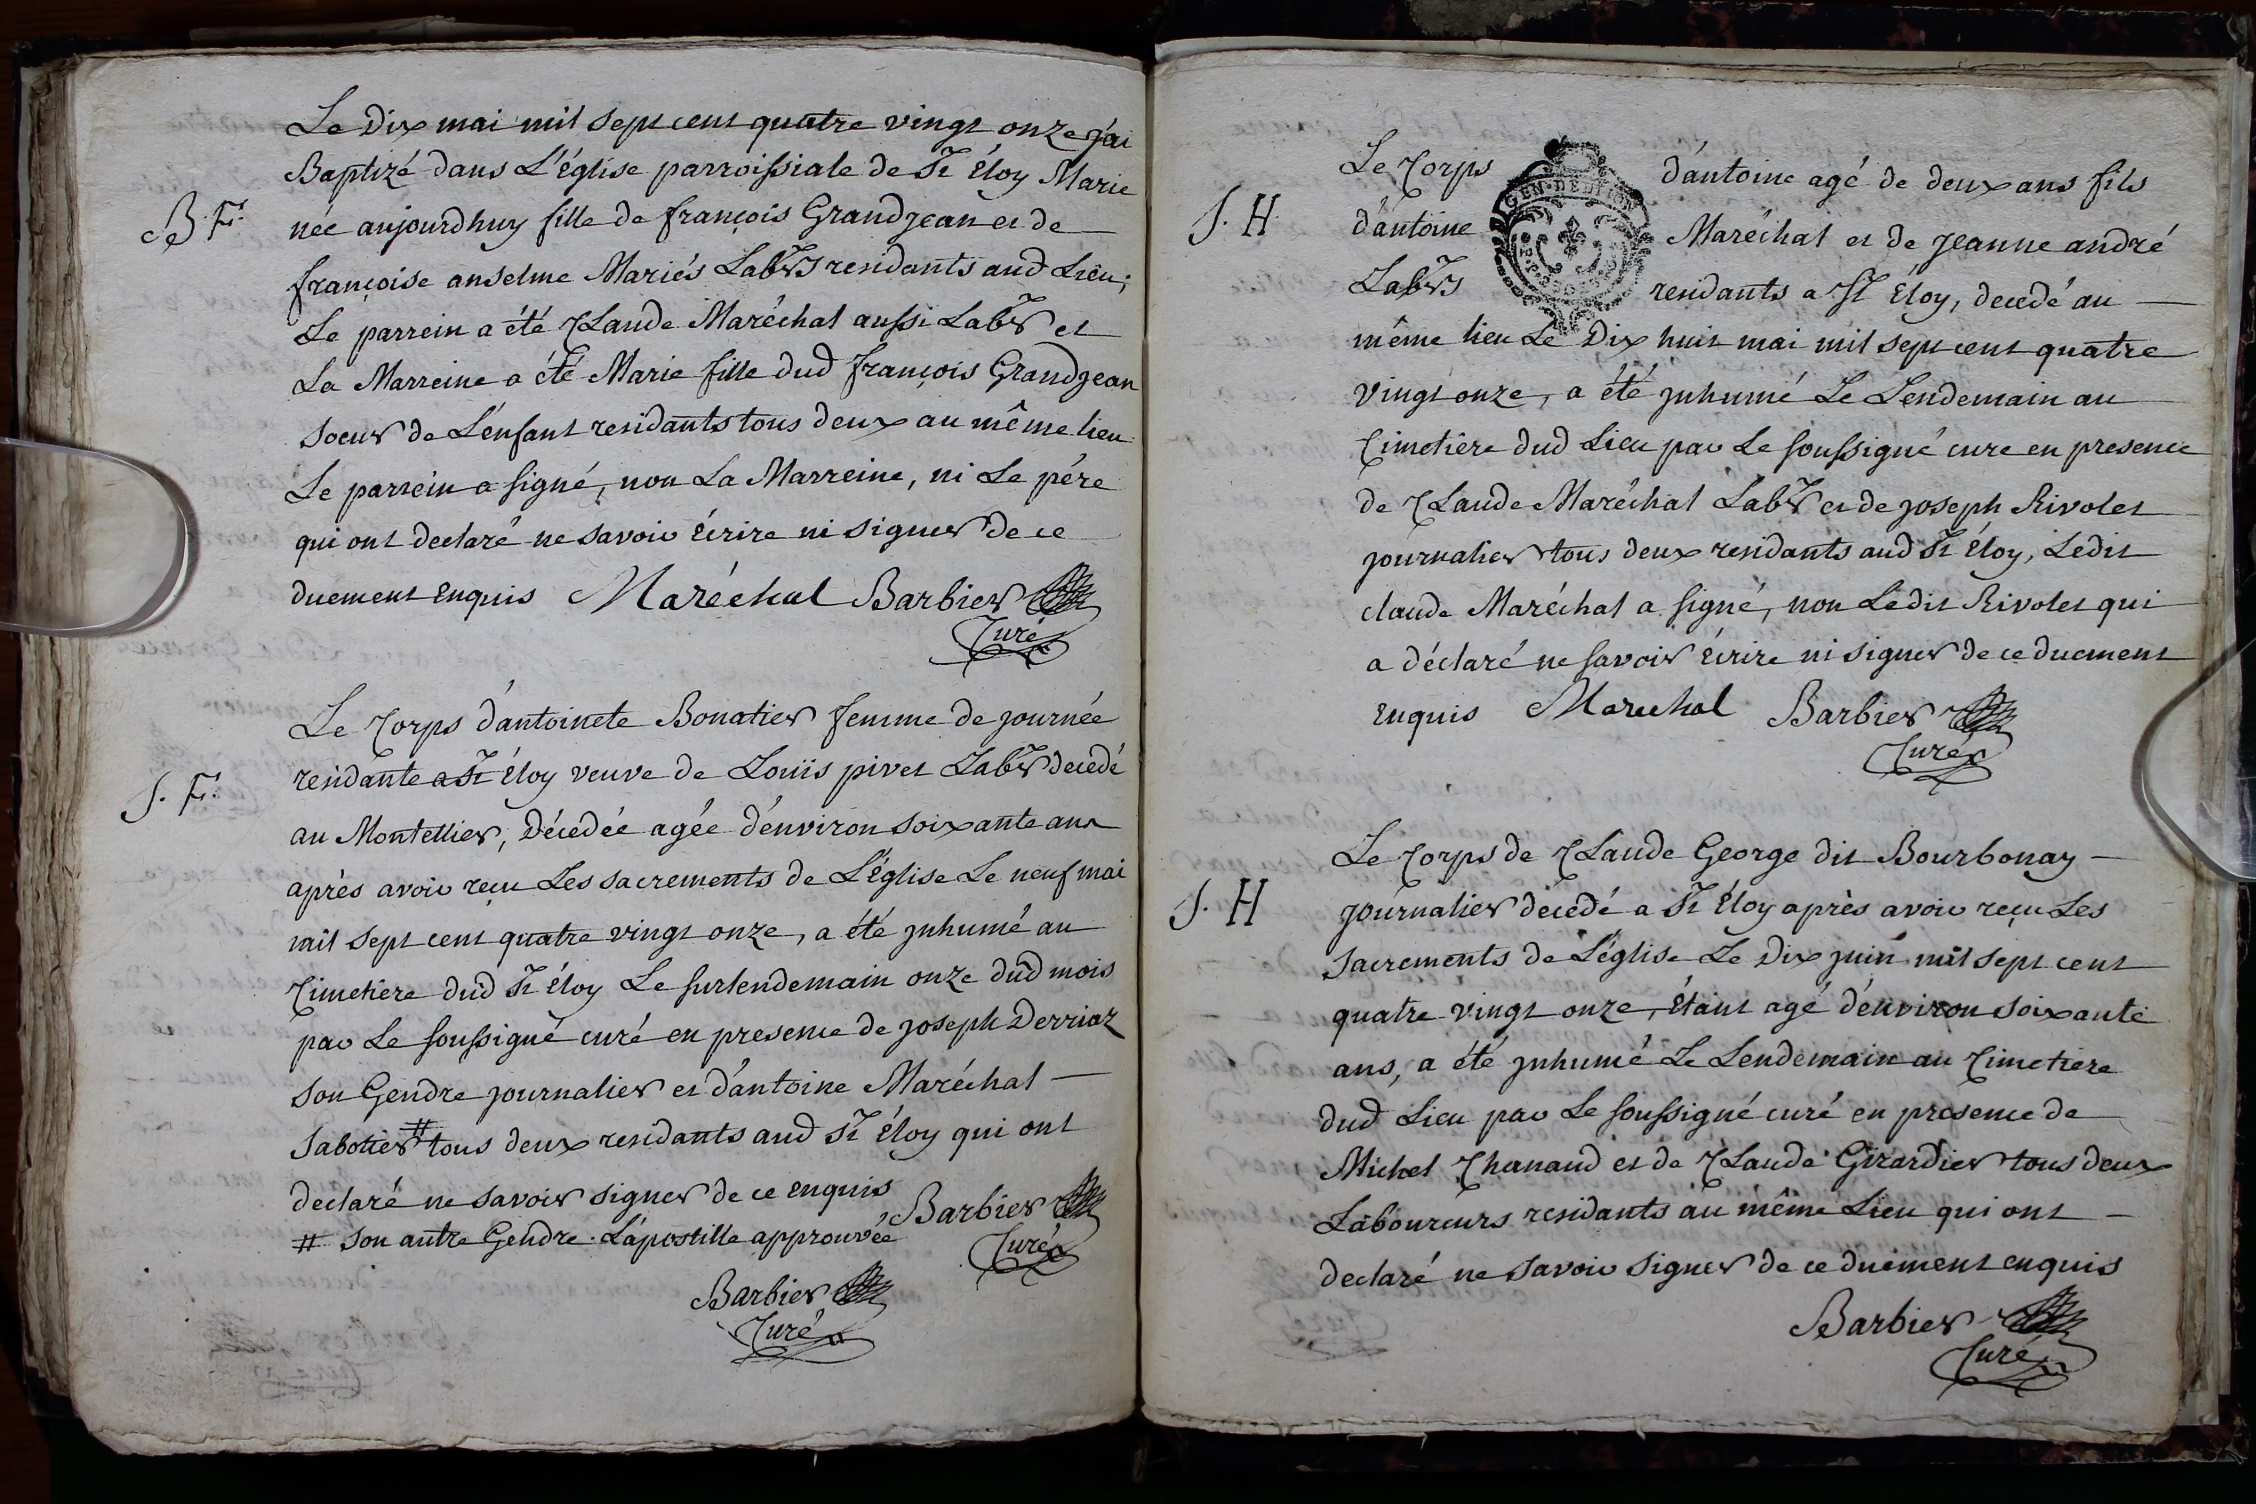 Le Dix mai mil sept cent quatre vingt onze j'ai
Baptizé dans L'église parroissiale de St Éloy Marie
B. F.
née aujourdhuy fille de françois Grandjean et de
françoise anselme Mariés Labrs residants aud Lieu;
Le parrein a été Claude Maréchal aussi Labr et
La Marreine a été Marie fille dud françois Grandjean
soeur de L'enfant residants tous deux au même lieu
Le parrein a signé, non La Marreine, ni Le pére
qui ont declaré ne savoir écrire ni signer de ce
duement enquis Maréchal Barbier
Curé
Le Corps d'antoinete Bonatier femme de journée
J. F.
residante a St Éloy veuve de Louïs pivet Labr decedé
au Montellier, Décedée agée d'environ soixante ans
après avoir reçu Les sacrements de L'Église Le neuf mai
mil sept cent quatre vingt onze, a été jnhumé au
Cimetiere dud St Éloy Le surlendemain onze dud mois
par Le soussigné curé en presence de joseph Derriaz
son Gendre journalier et d'antoine Maréchal
sabotier # tous deux residants aud St Éloy qui ont
declaré ne savoir signer de ce enquis Barbier
Curé
# son autre Gendre. L'apostille approuvée
Barbier
Curé
Le Corps d'antoine agé de deux ans fils
J. H
d'antoine Maréchal et de jeanne andré
Labrs residants a St Éloy, decedé au
GEN. DE DIJON
même lieu Le Dix huit mai mil sept cent quatre
vingt onze, a été jnhumé Le Lendemain au
Cimetiere dud Lieu par Le soussigné cure en presence
de Claude Maréchal Labr et de joseph Rivolet
journalier tous deux residants aud St Éloy, Ledit
claude Maréchal a signé, non Ledit Rivolet qui
a déclaré ne savoir écrire ni signer de ce duement
enquis Marechal Barbier
Curé
Le Corps de Claude George dit Bourbonay
J. H
journalier décédé a St Éloy après avoir reçu Les
sacrements de L'église Le Dix juin mil sept cent
quatre vingt onze, étant agé d'environ soixante
ans, a été jnhumé Le Lendemain au Cimetiere
dud Lieu par Le soussigné curé en presence de
Michel Chanaud et de Claude Girardier tous deux
Laboureurs residants au même Lieu qui ont
declaré ne savoir signer de ce duement enquis
Barbier
Curé